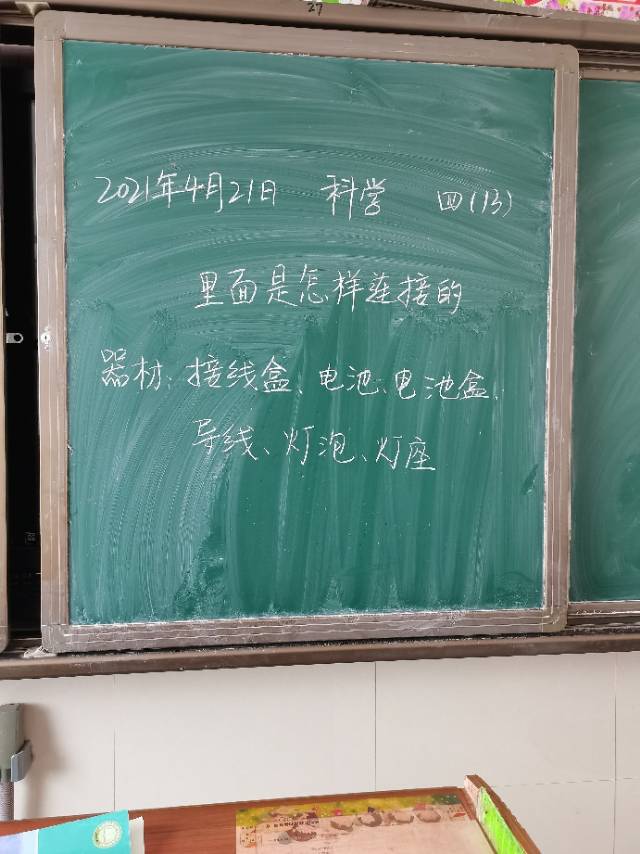 27
2021年4月21日 科学 四(13)
里面是怎样连接的
器材:接线盒、电池、电池盒、
导线、灯泡、灯座